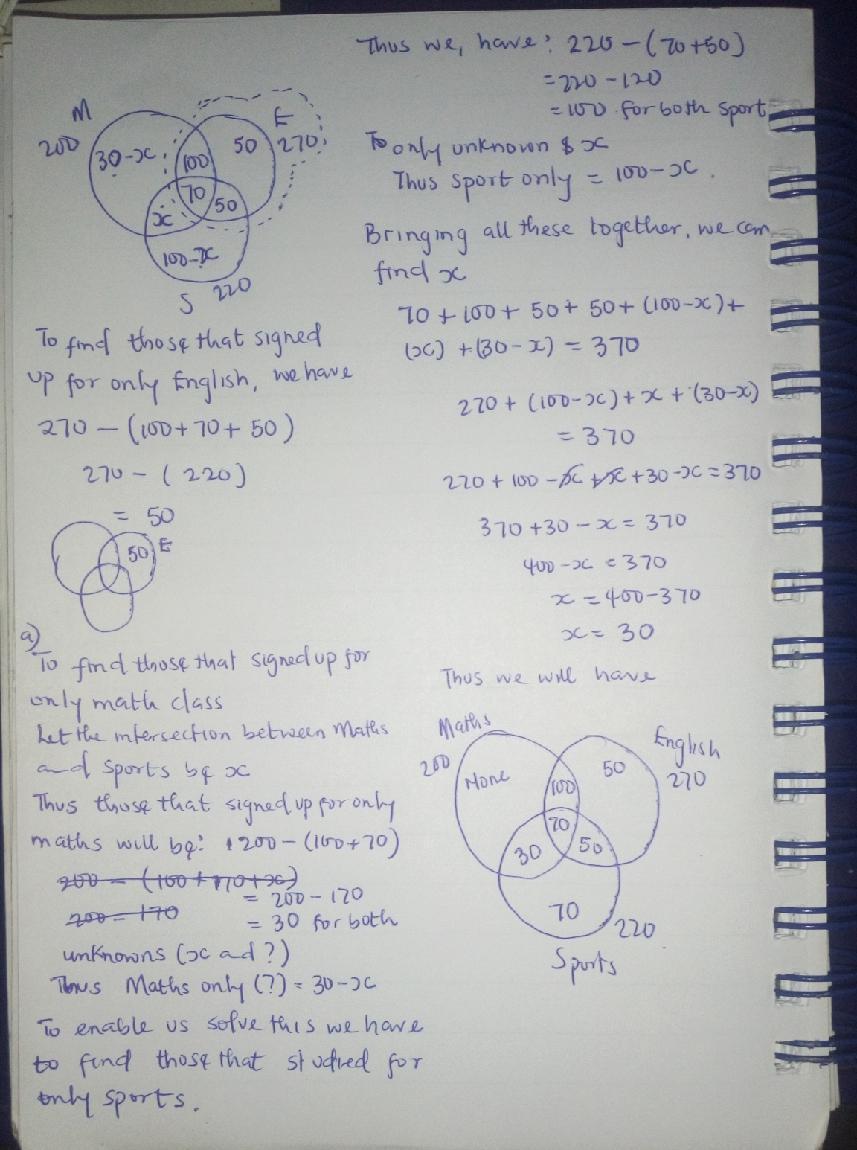 M
200
E
270
30-x
100
50
70
x
50
100-x
S 220
To find those that signed
up for only English, we have
270 - (100+70+50)
270 - (220)
= 50
50 E
a)
To find those that signed up for
only math class
Let the intersection between Maths
and sports be x
Thus those that signed up for only
maths will be: 200 - (100+70)
200 - (100+70+x)
= 200-170
200-170
= 30 for both
unknowns (x and ?)
Thus Maths only (?) = 30-x
To enable us solve this we have
to find those that studied for
only sports.
Thus we, have: 220 - (70+50)
=220-120
= 100 for both sport
To only unknown & x
Thus sport only = 100-x.
Bringing all these together, we can
find x
70 + 100 + 50 + 50 + (100-x)+
(x) + (30-x) = 370
270 + (100-x) + x + (30-x)
= 370
270 + 100 - x + x + 30 - x = 370
370 + 30 - x = 370
400 - x = 370
x = 400-370
x = 30
Thus we will have
Maths
200
English
270
None
100
50
70
30
50
70
220
Sports